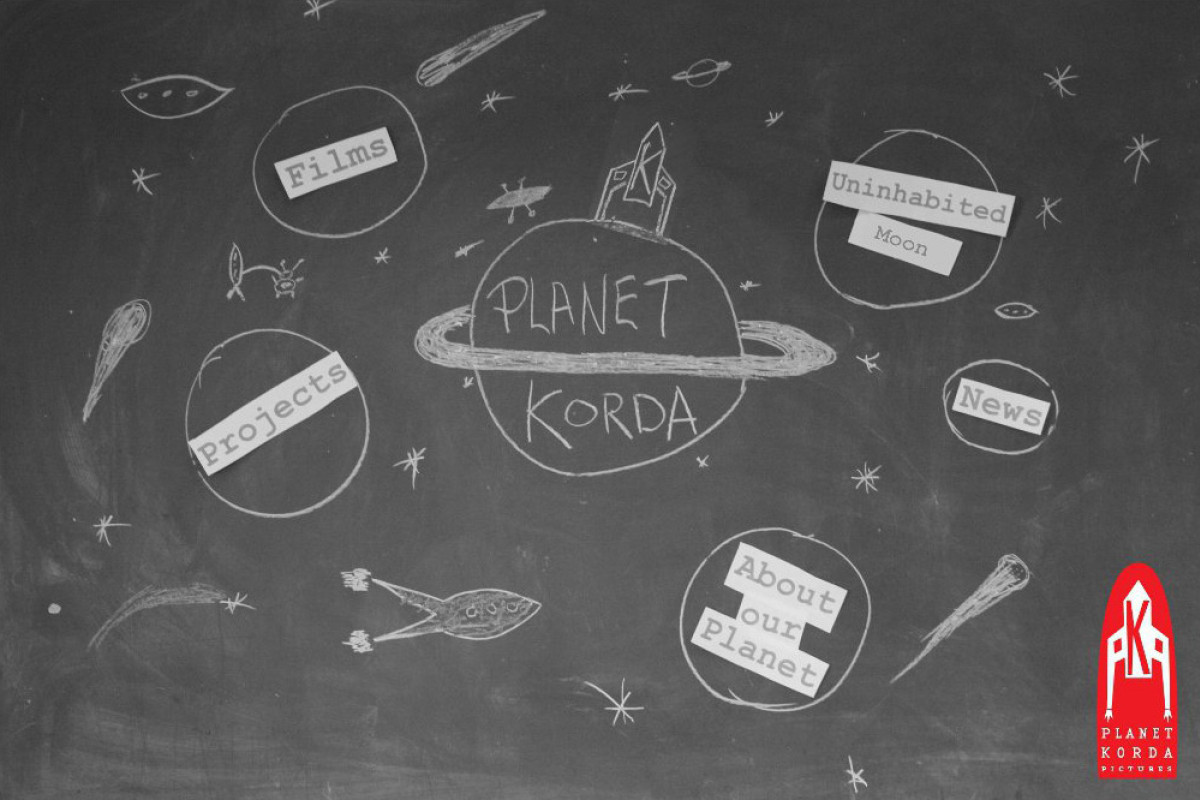 Films
Uninhabited
Moon
K
PLANET
KORDA
Projects
News
About
our
Planet
K
PLANET
KORDA
PICTURES